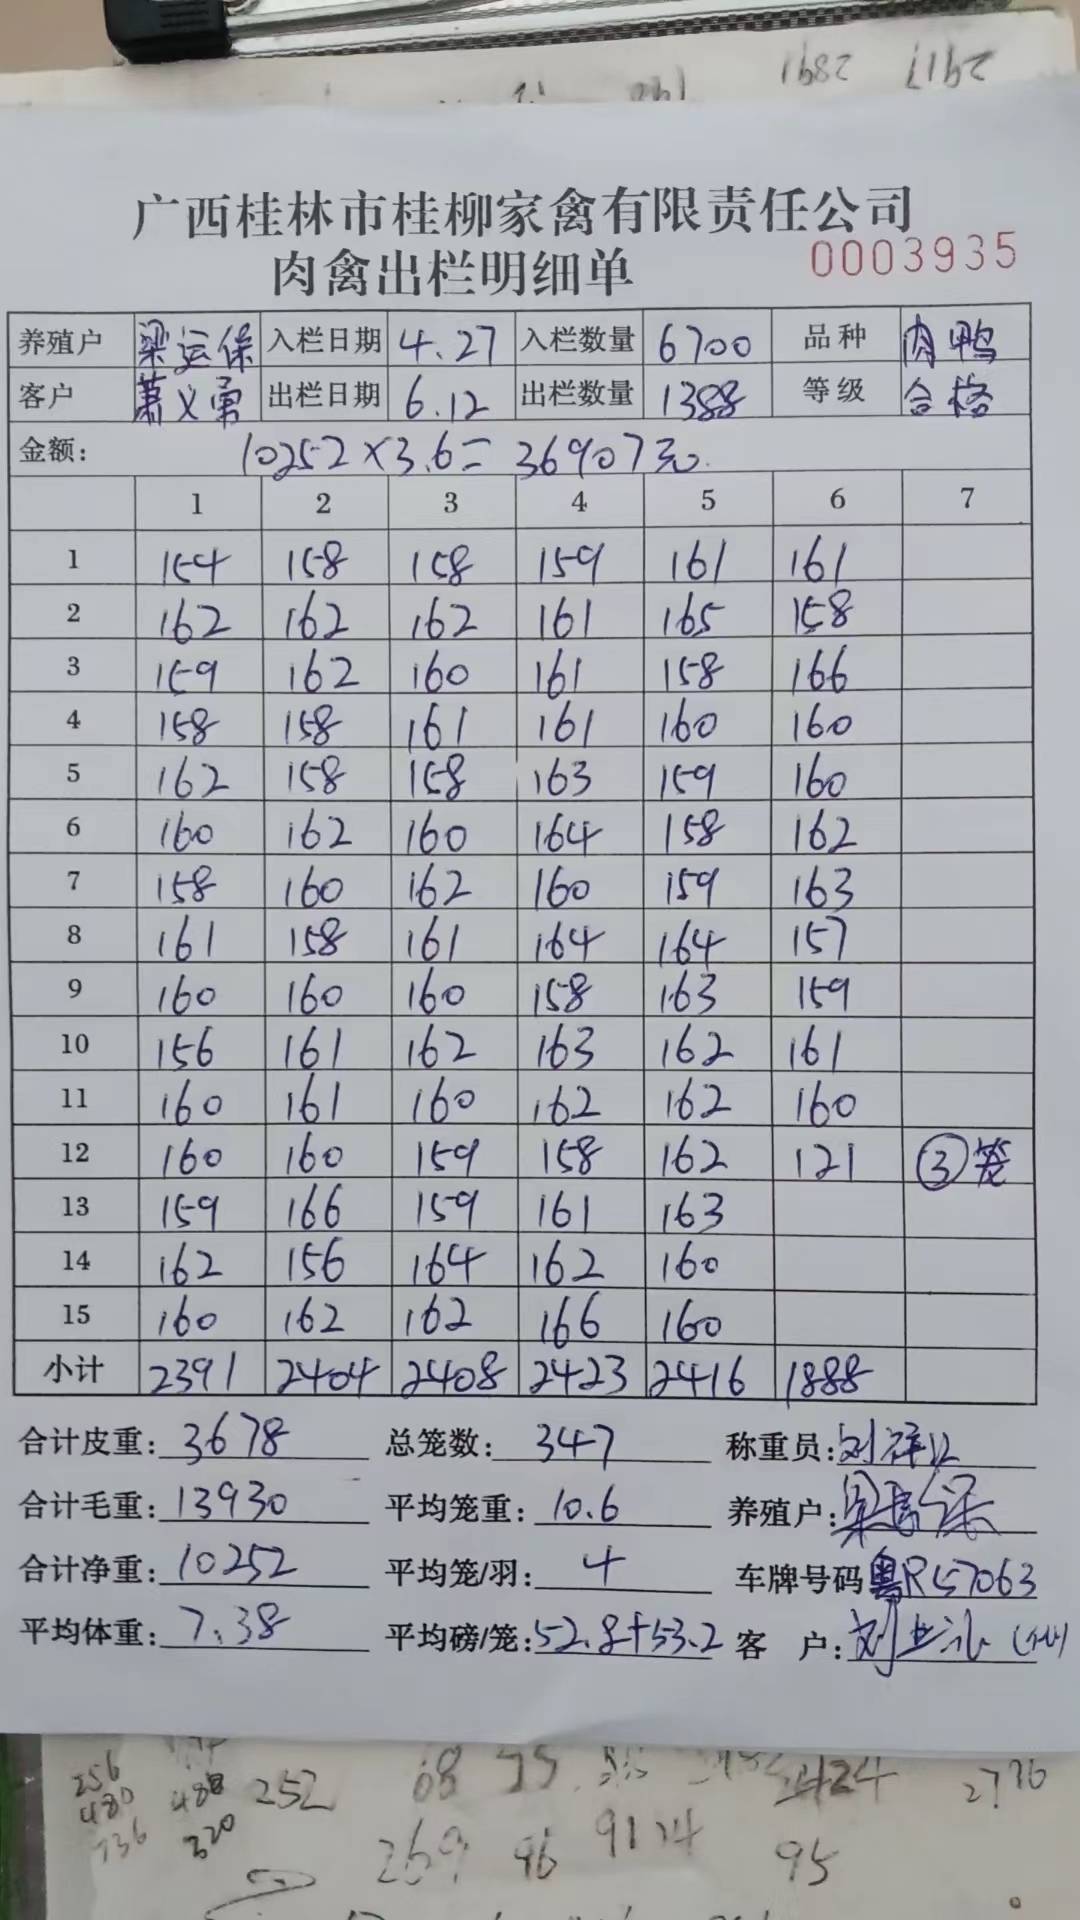 广西桂林市桂柳家禽有限责任公司
肉禽出栏明细单 0003935
养殖户 梁运保 入栏日期 4.27 入栏数量 6700 品种 肉鸭
客户 萧义勇 出栏日期 6.12 出栏数量 1388 等级 合格
金额: 10252×3.6= 36907元.
1 2 3 4 5 6 7
1 154 158 158 159 161 161
2 162 162 162 161 165 158
3 159 162 160 161 158 166
4 158 158 161 161 160 160
5 162 158 158 163 159 160
6 160 162 160 164 158 162
7 158 160 162 160 159 163
8 161 158 161 164 164 157
9 160 160 160 158 163 159
10 156 161 162 163 162 161
11 160 161 160 162 162 160
12 160 160 159 158 162 121 ③笼
13 159 166 159 161 163
14 162 156 164 162 160
15 160 162 162 166 160
小计 2391 2404 2408 2423 2416 1888
合计皮重: 3678 总笼数: 347 称重员:
合计毛重: 13930 平均笼重: 10.6 养殖户:
合计净重: 10252 平均笼/羽: 4 车牌号码 粤R57063
平均体重: 7.38 平均磅/笼: 52.8+53.2 客 户:
256
480 488 252 68 424 2776
736 320 269 96 9124 95